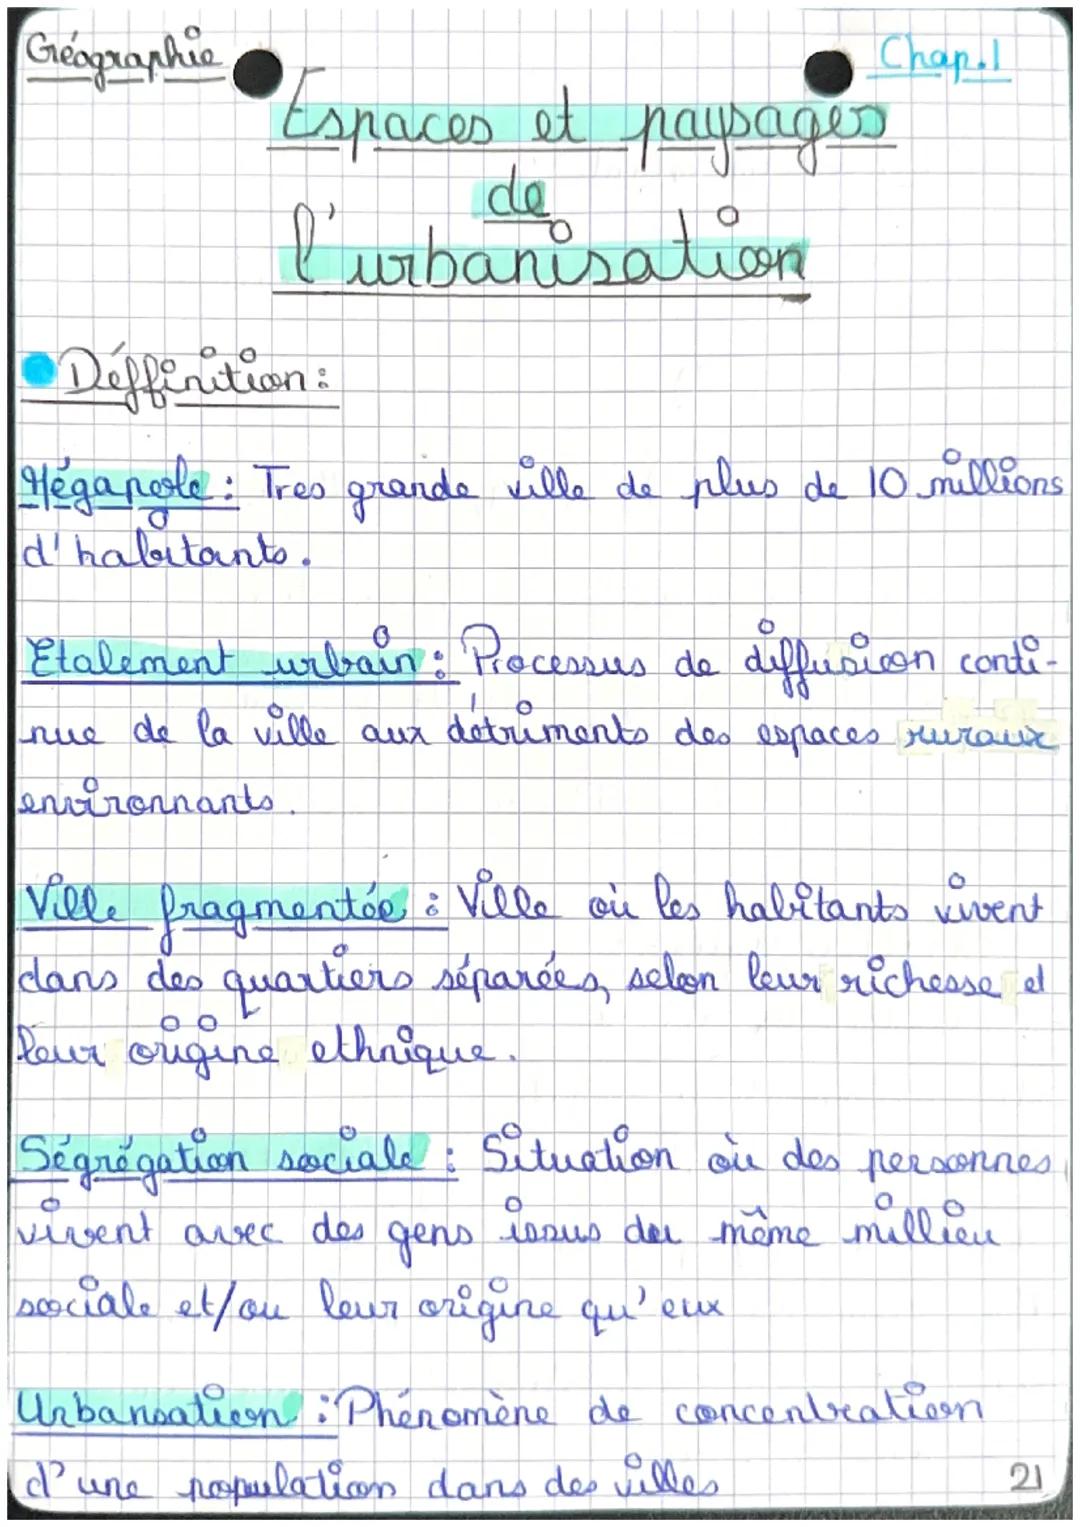 Géographie
Chap.1
Espaces et paysages
de
l'urbanisation
Déffinition :
Mégapole : Tres grande ville de plus de 10 millions
d'habitants.
Etalement urbain : Processus de diffusion conti-
nue de la ville aux détriments des espaces ruraux
environnants.
Ville fragmentée : Ville où les habitants vivent
dans des quartiers séparées, selon leur richesse et
leur origine ethnique.
Ségrégation sociale : Situation où des personnes
vivent avec des gens issus du même millieu
sociale et/ou leur origine qu'eux
Urbansation : Phénomène de concentration
d'une population dans des villes
21